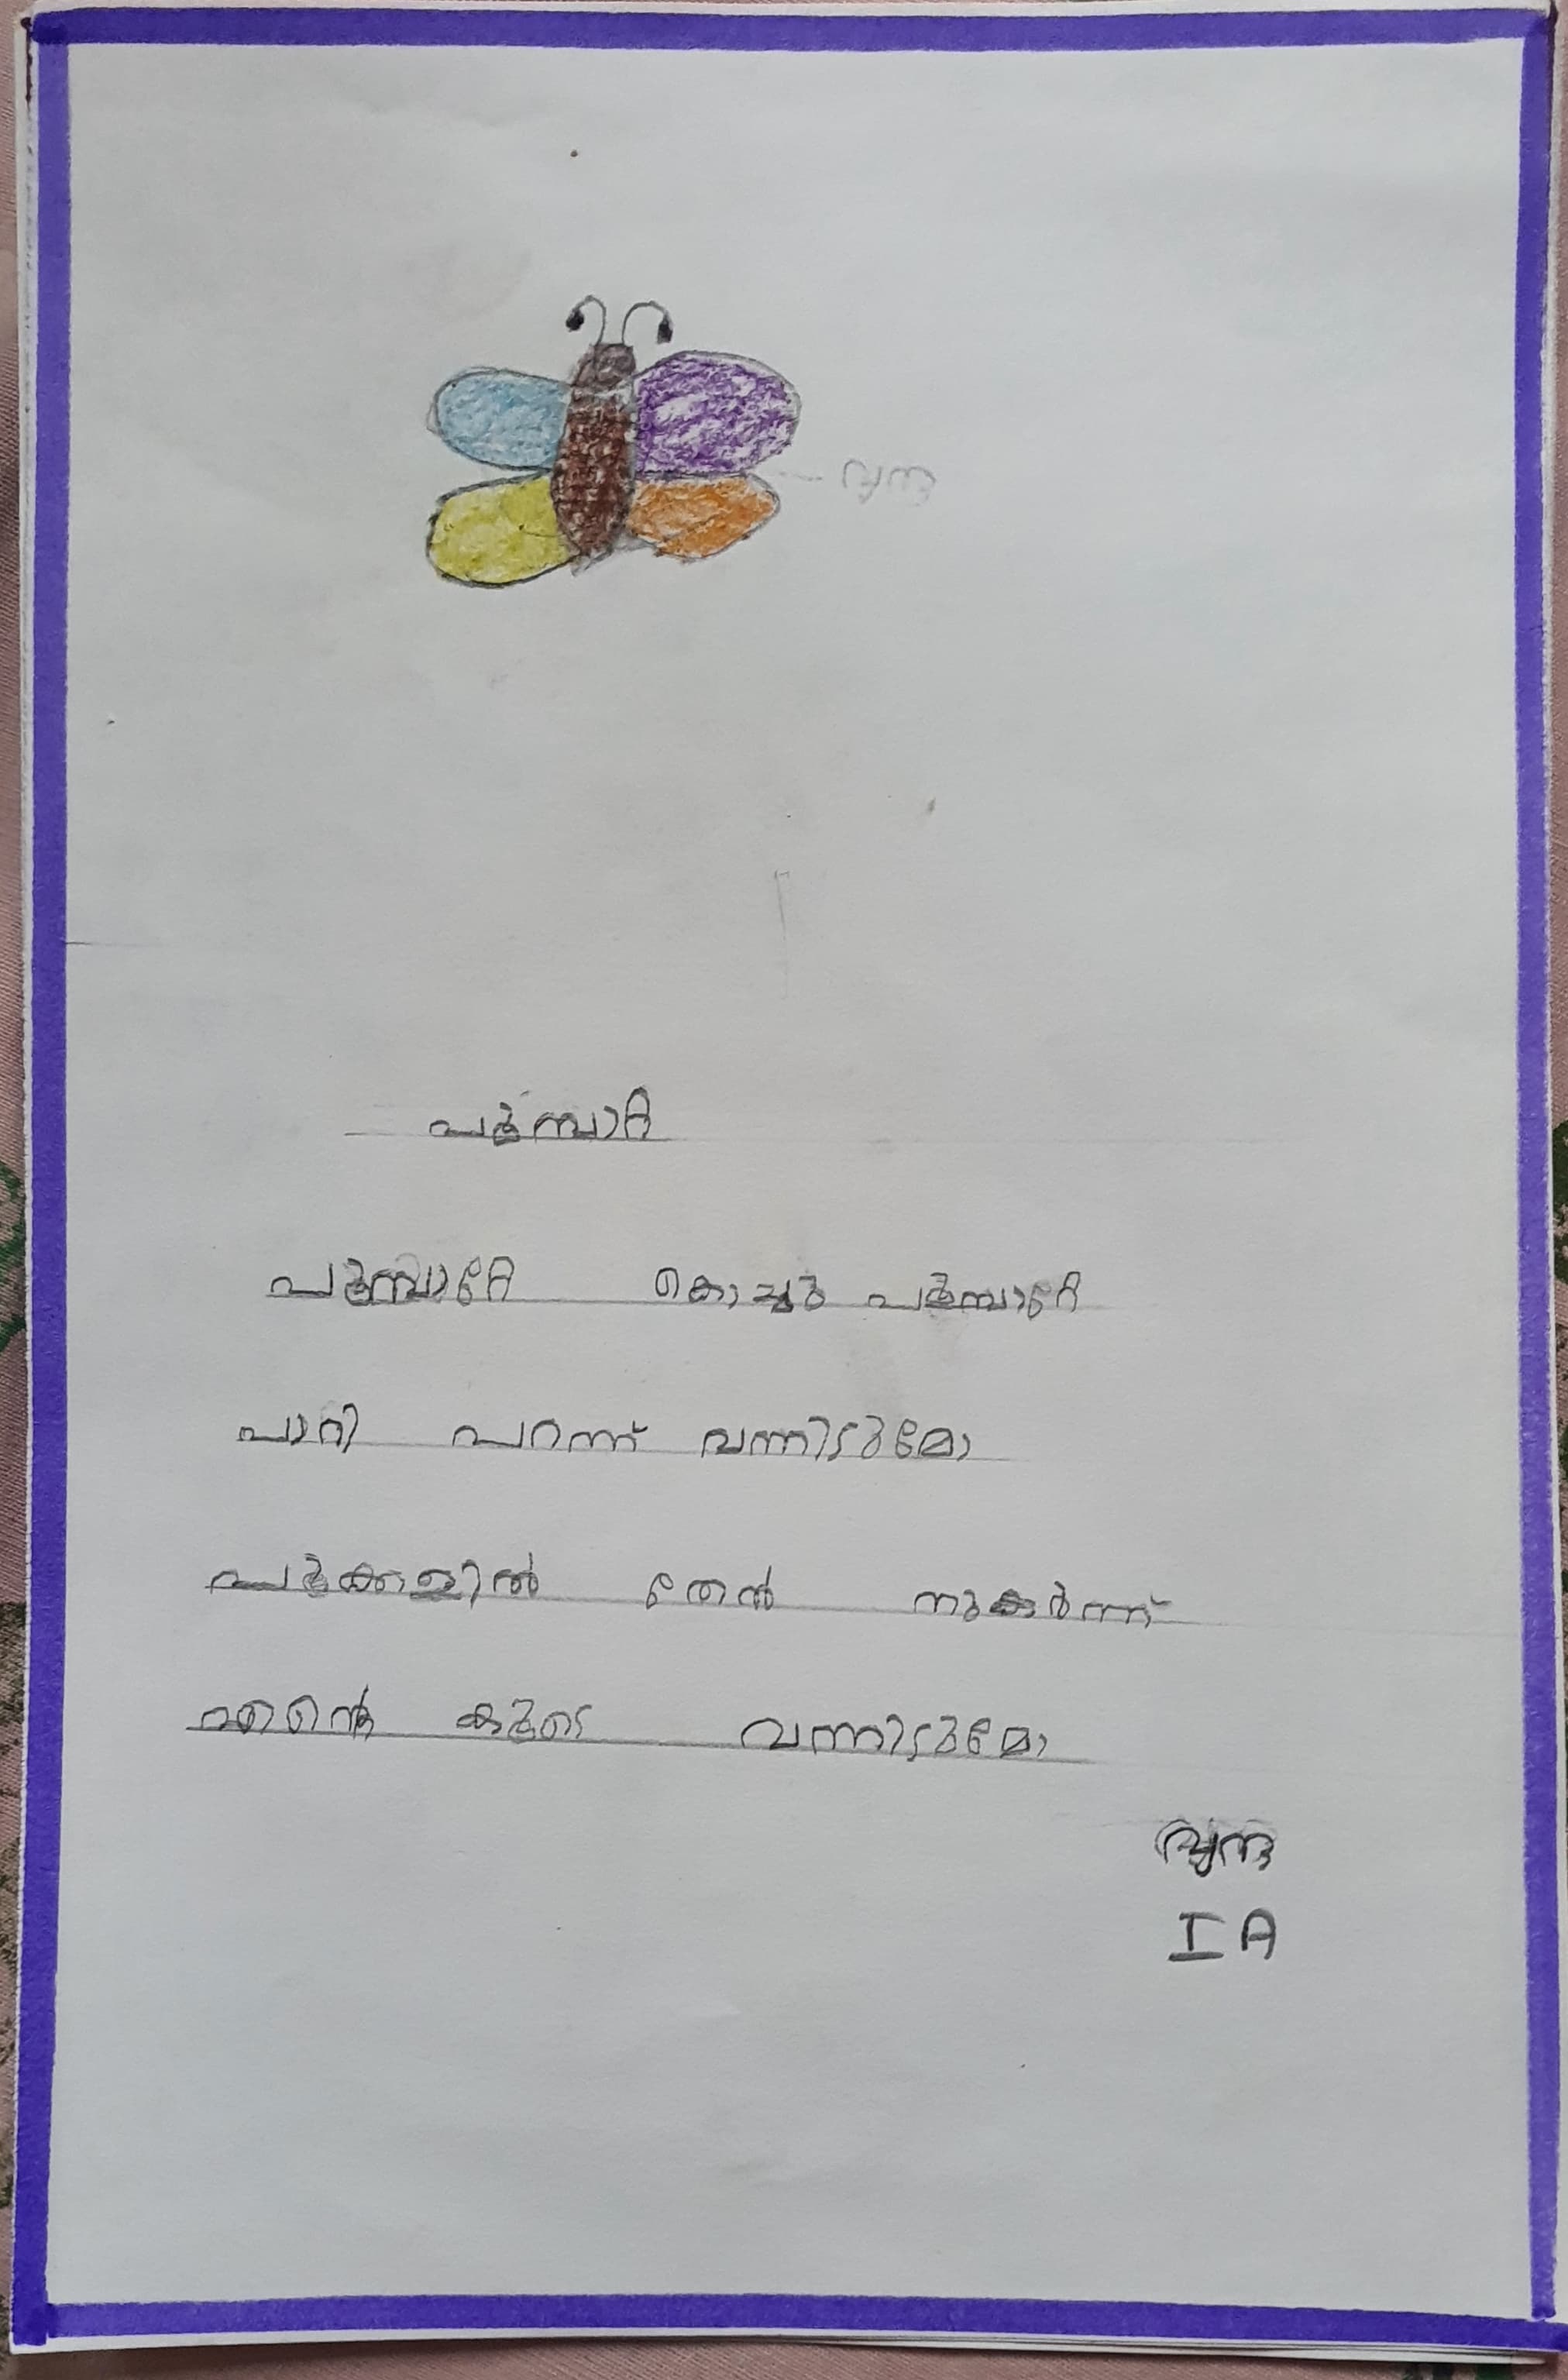 വൃന്ദ
പൂമ്പാറ്റ
പൂമ്പാറ്റേ കൊച്ചു പൂമ്പാറ്റേ
പാറി പറന്ന് വന്നിടുമോ
പൂക്കളിൽ തേൻ നുകർന്ന്
എന്റെ കൂടെ വന്നിടുമോ
വൃന്ദ
I A